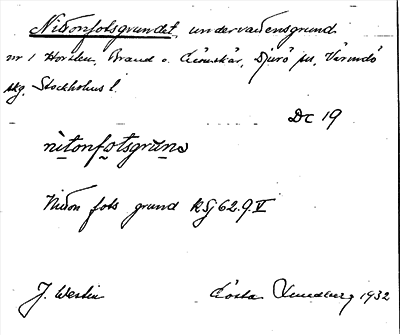 Nittonfotsgrundet, undervattensgrund
nr 1 Horsten, Brand o. Lönskär, Djurö sn, Värmdö
skg. Stockholms l.
Dc 19
nìtonfotsgrũnd
Nitton fots grund RSj 62.9.V
J. Westin Gösta Lundberg 1932